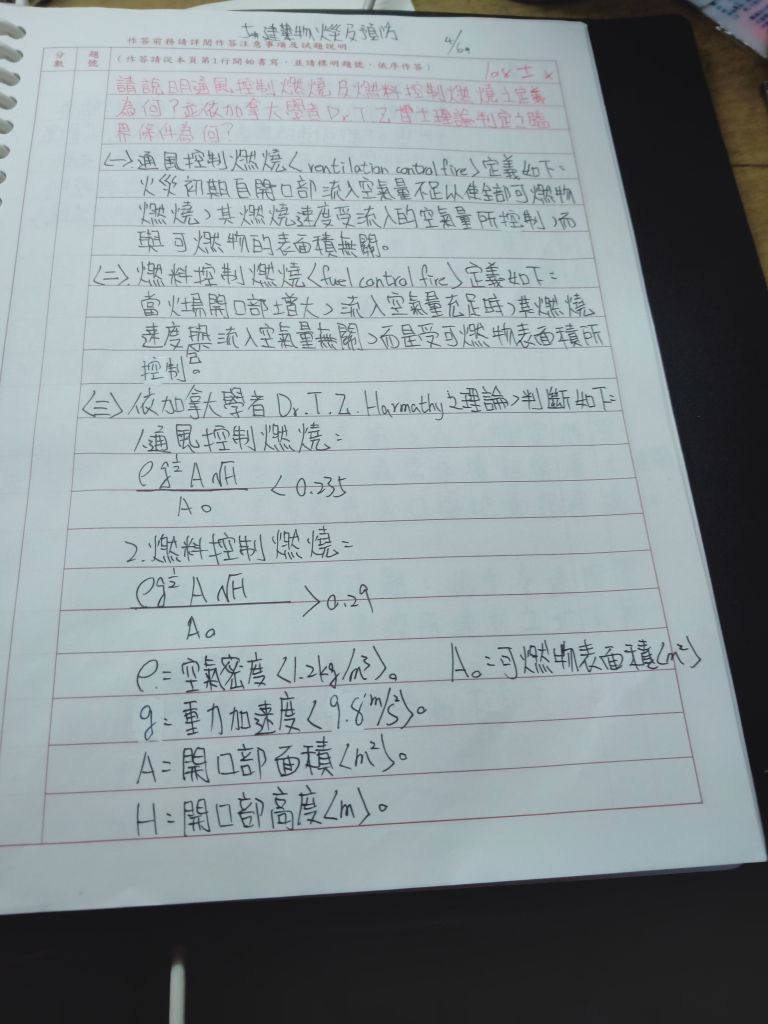 建築物火災及預防
4/69
作答前務請詳閱作答注意事項及試題說明
分數
題號
(作答請從本頁第1行開始書寫，並請標明題號，依序作答)
請說明通風控制燃燒及燃料控制燃燒之定義
為何？並依加拿大學者Dr.T.Z博士理論判定之臨
界條件為何？
<一>通風控制燃燒<ventilation control fire>定義如下：
火災初期自開口部流入空氣量不足以使全部可燃物
燃燒，其燃燒速度受流入的空氣量所控制，而
與可燃物的表面積無關。
<二>燃料控制燃燒<fuel control fire>定義如下：
當火場開口部增大，流入空氣量充足時，其燃燒
速度與流入空氣量無關，而是受可燃物表面積所
控制。
<三>依加拿大學者Dr.T.Z.Harmathy之理論，判斷如下：
1.通風控制燃燒：
ρg^½ A√H / A₀ < 0.235
2.燃料控制燃燒：
ρg^½ A√H / A₀ > 0.29
ρ=空氣密度<1.2kg/m³>。 A₀=可燃物表面積<m²>
g=重力加速度<9.8m/s²>。
A=開口部面積<m²>。
H=開口部高度<m>。